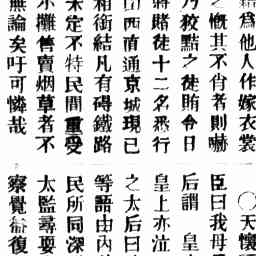 錯爲他人作嫁衣裳
之慨其不肖者則嚇
乃狡黠之徒賄令日
將賭徒十二名悉行
山西直通京城現已
相銜結凡有碍鐵路
未定不特民間重受
小攤售賣烟草者不
無論矣吁可憐哉
〇天懷
臣曰我母
后謂 皇
皇上亦泣
之太后曰
等語由內
民所同深
太監尋
察覺 復